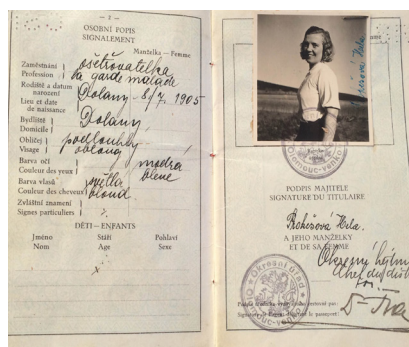 — 2 —
OSOBNÍ POPIS
SIGNALEMENT
Manželka – Femme
Zaměstnání
Profession
ošetřovatelka
la garde malade
Rodiště a datum
narození
Lieu et date
de naissance
Dolany 8/7. 1905
Bydliště
Domicile
Dolany
Obličej
Visage
podlouhlý
oblong
Barva očí
Couleur des yeux
modrá
bleue
Barva vlasů
Couleur des cheveux
světlá
blond
Zvláštní znamení
Signes particuliers
DĚTI – ENFANTS
Jméno Stáří Pohlaví
Nom Age Sexe
x
Olomouc-venkov
PODPIS MAJITELE
SIGNATURE DU TITULAIRE
A JEHO MANŽELKY
ET DE SA FEMME
Okresní hejtman
Chef du distr
Okresní úřad